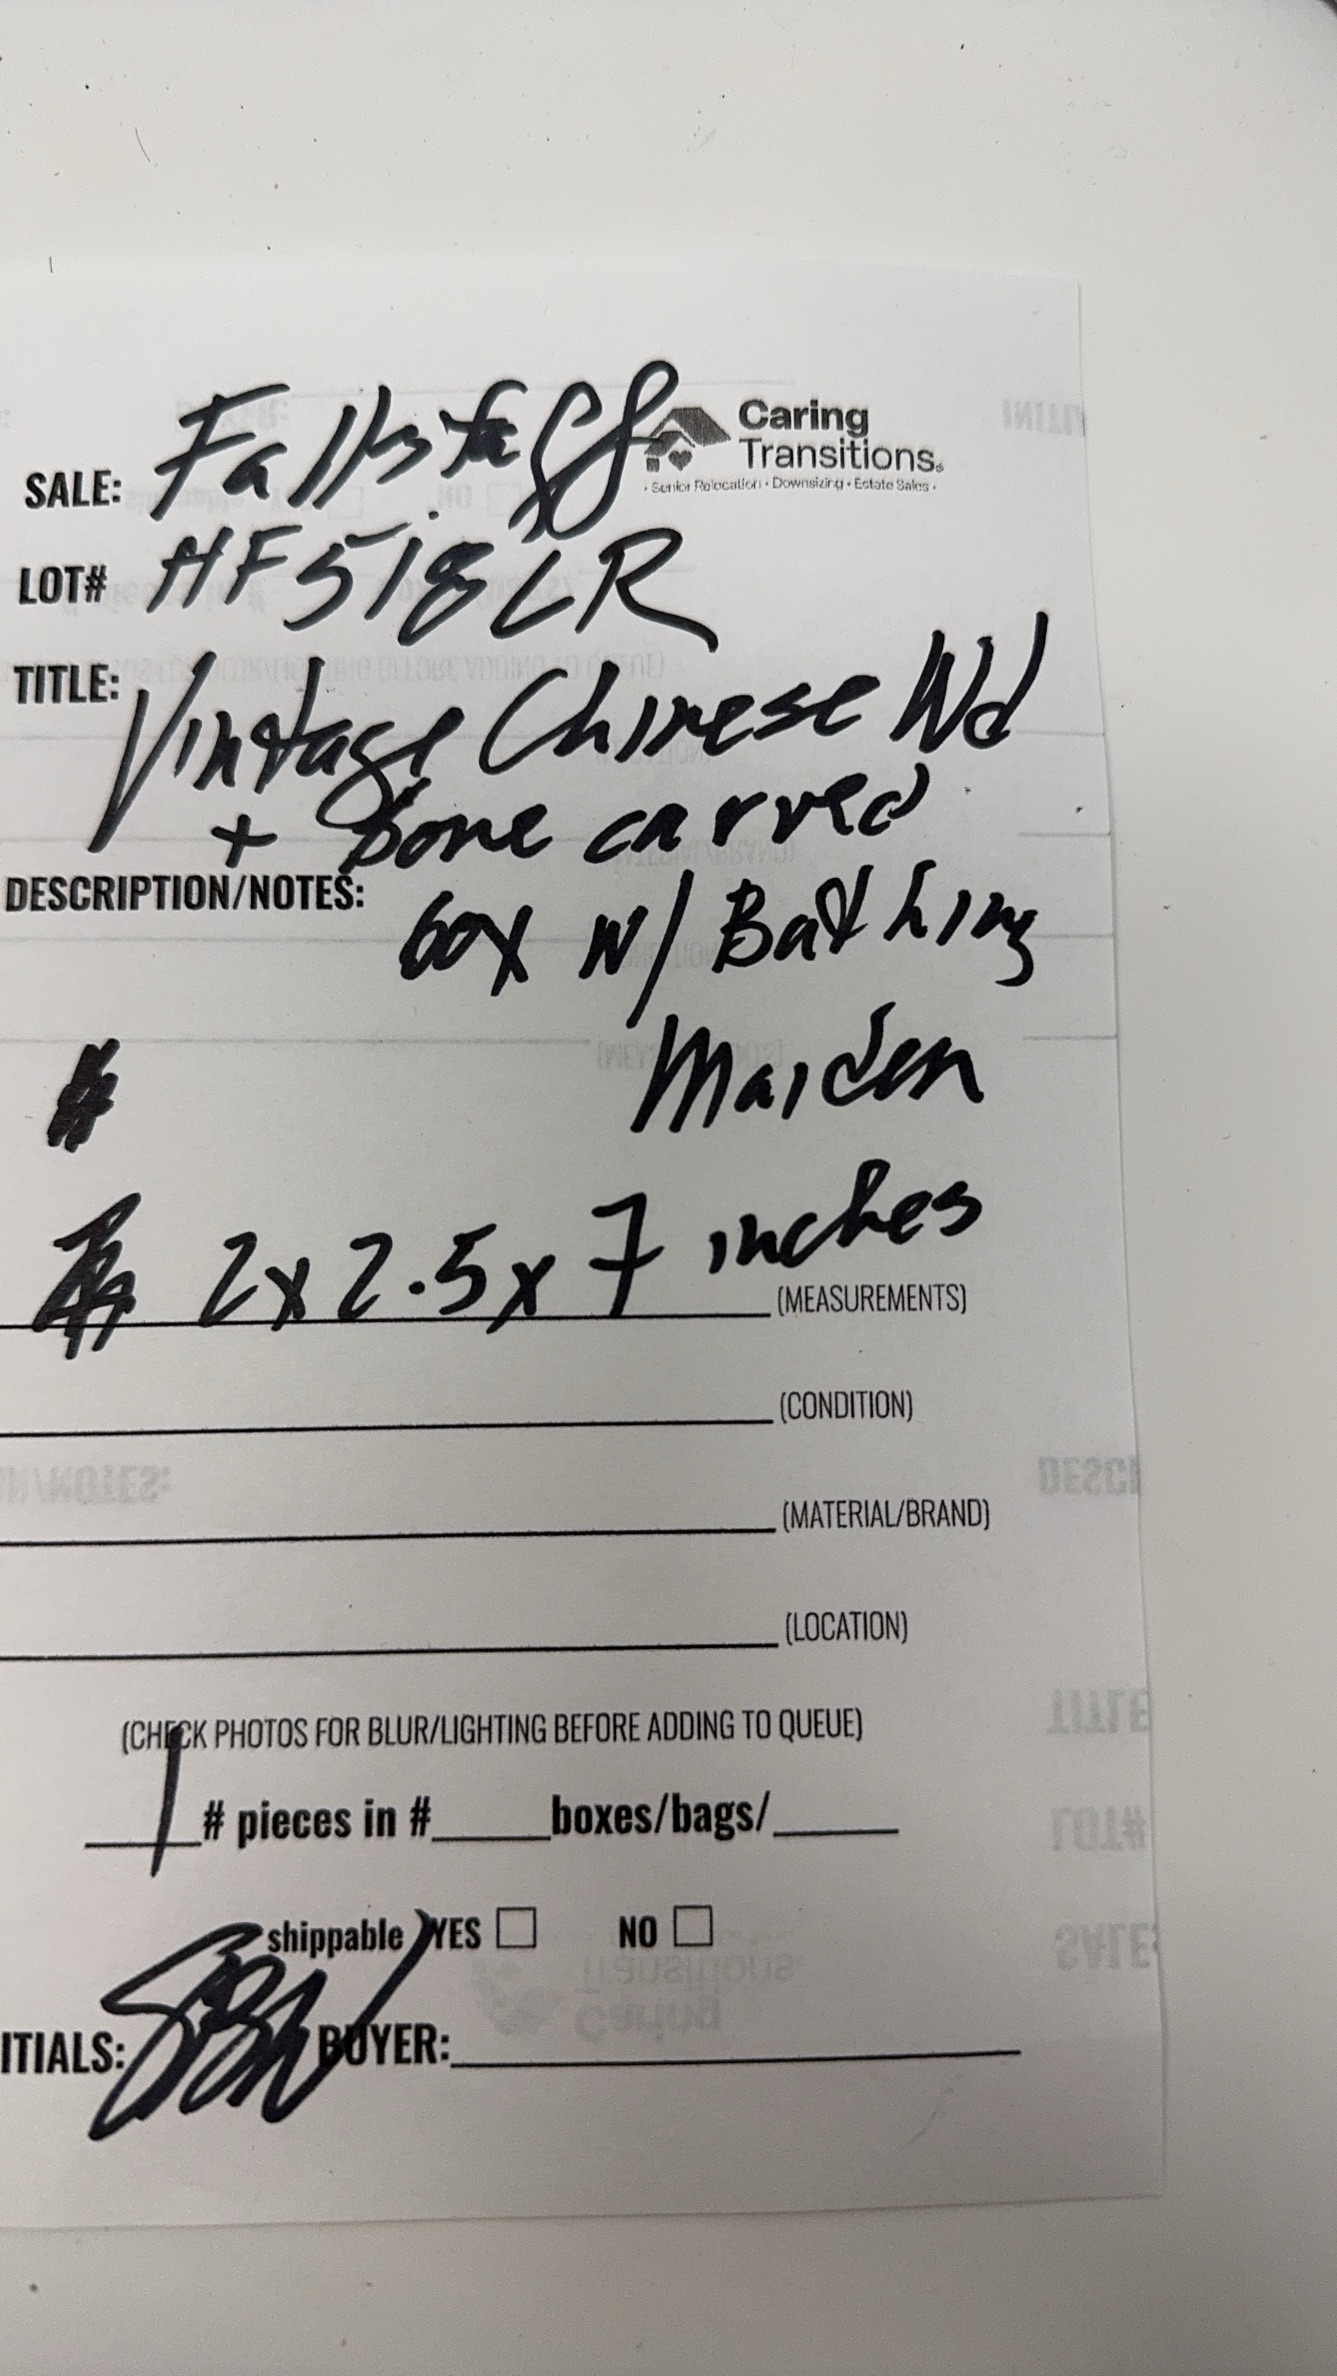 SALE: Fallstaff
Caring
Transitions.
· Senior Relocation · Downsizing · Estate Sales ·
LOT# HF518LR
TITLE: Vintage Chinese Wd
+ bone carved
DESCRIPTION/NOTES: box w/ Bathing
Maiden
2x2.5x7 inches (MEASUREMENTS)
(CONDITION)
(MATERIAL/BRAND)
(LOCATION)
(CHECK PHOTOS FOR BLUR/LIGHTING BEFORE ADDING TO QUEUE)
1 # pieces in # boxes/bags/
shippable YES NO
ITIALS: BUYER: